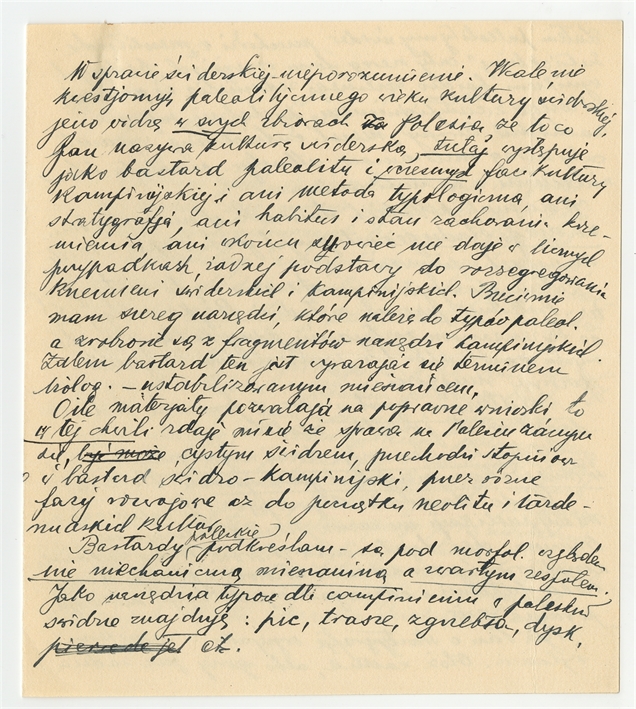 W sprawie świderskiej - nieporozumienie. Wcale nie
kwestjonuję paleolitycznego wieku kultury świderskiej,
jeno widzę w swych zbiorach z Polesia, że to co
pan nazywa kulturą świderską, tutaj występuje
jako bastard paleolitu i wczesnych faz kultury
kampinijskiej i ani metoda typologiczna, ani
stratygrafja, ani habitus i stan zachowania krze-
mienia, ani wkońcu surowiec nie daje w licznych
przypadkach żadnej podstawy do rozsegregowania
krzemieni świderskich i kampinijskich.
mam szereg narzędzi, które należą do typów paleol.
a zrobione są z fragmentów narzędzi kampinijskich.
Zatem bastard ten jest wyrażając się terminem
biolog. - ustabilizowanym mieszańcem.
O ile materjały pozwalają na poprawne wnioski, to
w tej chwili zdaje mi się że sprawa na Polesiu zaczyna
się, być może czystym świdrem, przechodzi stopniowo
w bastard świdro-kampinijski, przez różne
fazy rozwojowe aż do początku neolitu i tarde-
nuaskich kultur.
Bastardy poleskie podkreślam - są pod morfol. względem
nie mechaniczną mieszaniną a zwartym zespołem.
Jako narzędzia typowe dla campinienu w poleskim
świdrze znajduję: pic, trasze, zgrzebła, dysk,
etc.